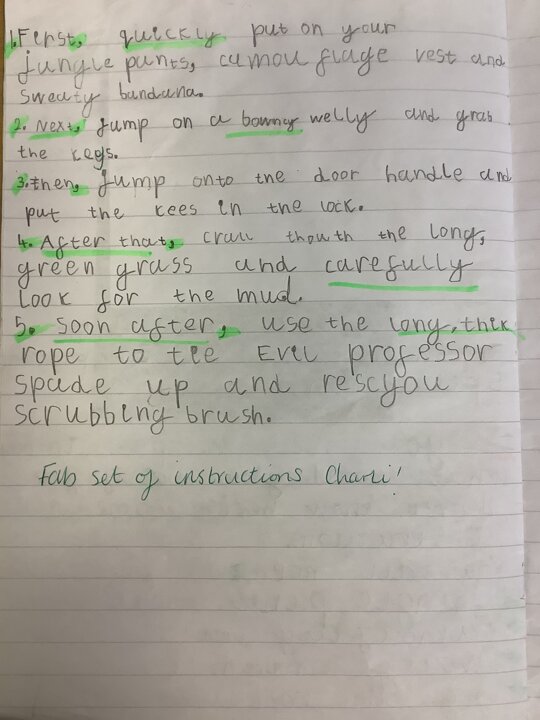 1.First, quickly put on your
jungle pants, camou flage vest and
sweaty bandana.
2. Next, jump on a bouncy welly and grab
the keys.
3.then, jump onto the door handle and
put the kees in the lock.
4. After that, craul thouth the long,
green grass and carefully
look for the mud.
5. Soon after, use the long, thik
rope to tie Evil professor
spade up and rescyou
scrubbing brush.
Fab set of instructions Charli!